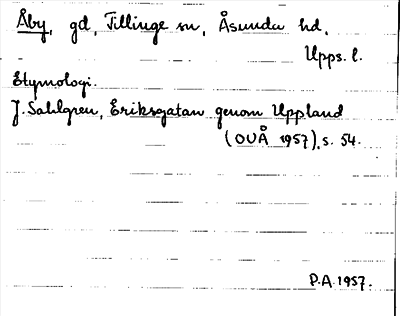 Åby, gd, Tillinge sn, Åsunda hd,
Upps. l.
Etymologi.
J. Sahlgren, Eriksgatan genom Uppland
(OUÅ 1957), s. 54.
P.A. 1957.